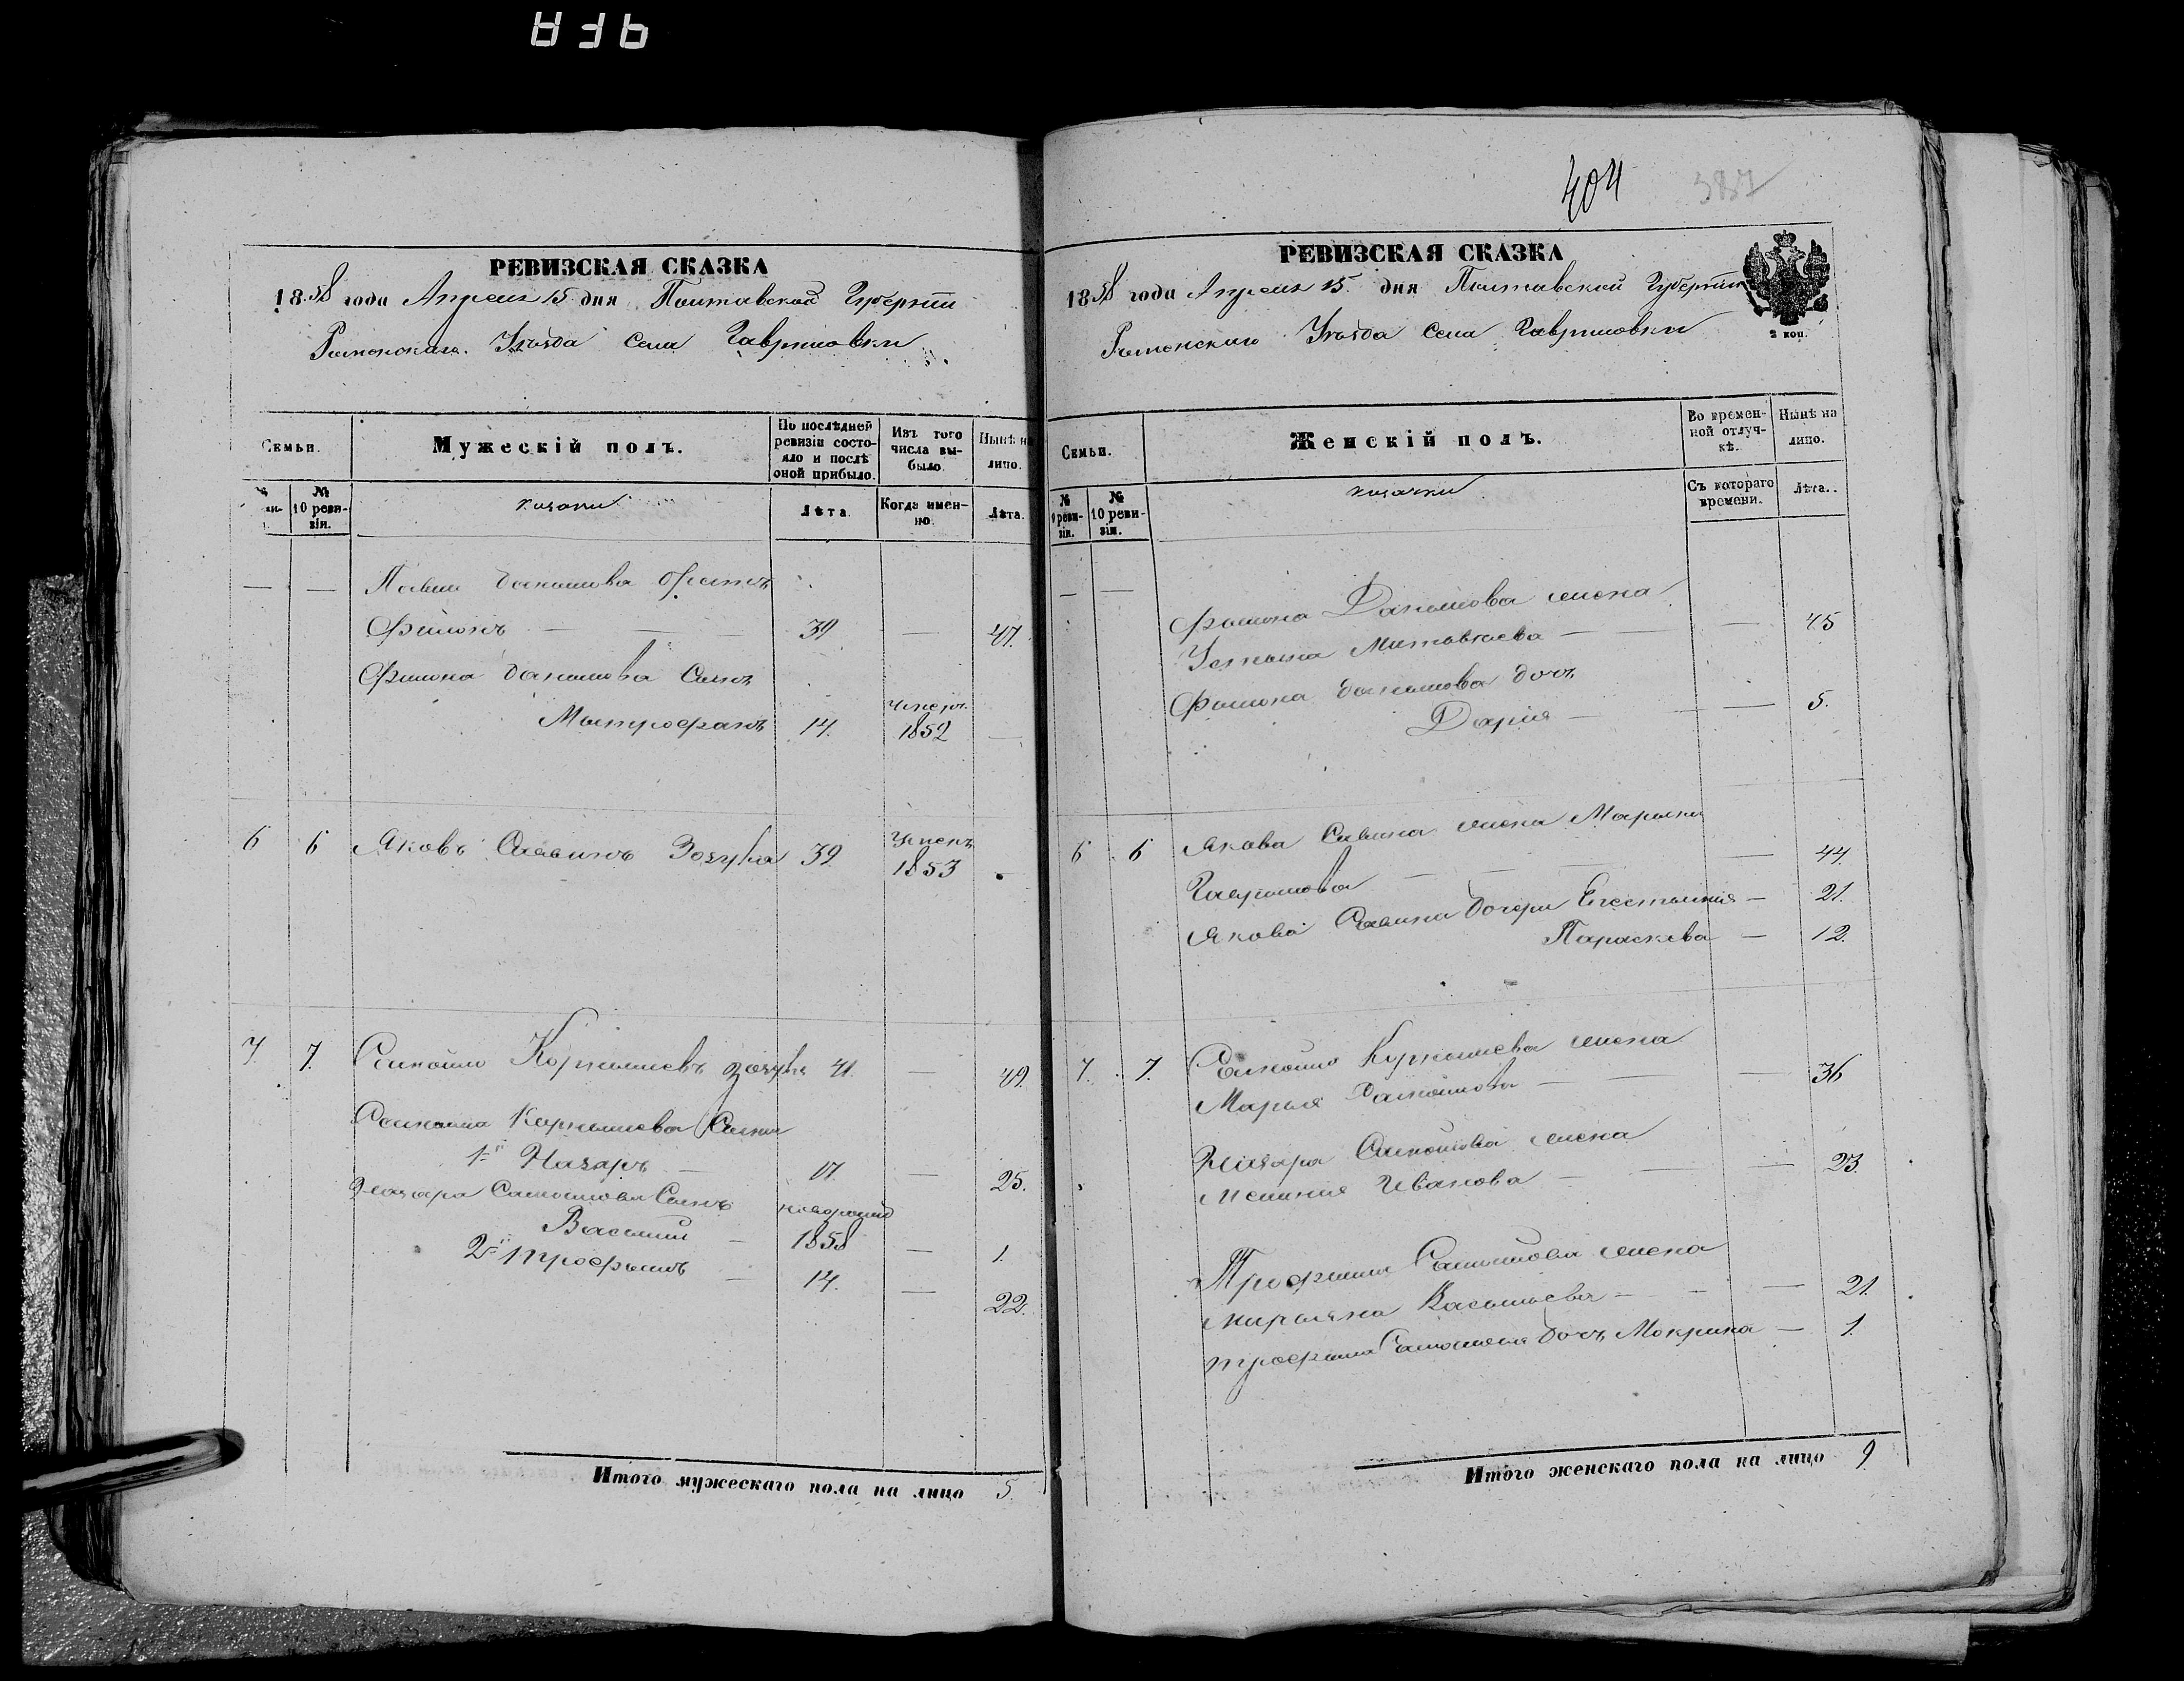 404 387
РЕВИЗСКАЯ СКАЗКА
1858 года Апреля 15 дня Полтавской Губернии
Роменскаго Уезда Села Гавриловки
Семьи.
Мужескій полъ.
По послѣдней ревизіи состояло и послѣ оной прибыло.
Изъ того числа выбыло.
Нынѣ на лицо.
№
№ 10 ревизіи.
казаки
Лѣта.
Когда именно.
Лѣта.
— — Павла Данилова братъ
Филонъ — — 39 — 47.
Филона Данилова Сынъ
Митрофанъ 14. умеръ 1852 —
6 6 Яковъ Савинъ Зозуля 39 умеръ 1853
7. 7. Самойло Корнѣиевъ Зозуля 41. — 49.
Самойла Корнѣиева Сыны
1й Назаръ — 17. — 25.
Назара Самойлова Сынъ
Василий — новорожд 1858 — 1.
2й Трофимъ — 14. — 22.
Итого мужескаго пола на лицо 5.
РЕВИЗСКАЯ СКАЗКА
1858 года Апреля 15. дня Полтавской Губернии
Роменскаго Уезда Села Гавриловки
2 коп.
Семьи.
Женскій полъ.
Во временной отлучкѣ.
Нынѣ на лицо.
№ 9 ревизіи.
№ 10 ревизіи.
казачки
Съ котораго времени.
Лѣта.
— — Филона Данилова жена
Устина Матвѣева — — — 45
Филона Данилова дочь
Дарія — — 5.
6 6 Якова Савина жена Марьяна
Гаврилова — — — 44.
Якова Савина дочери Евгения — 21.
Параскева — 12.
7. 7. Самойла Корнѣиева жена
Марья Самойлова — — — 36
Назара Самойлова жена
Мелания Иванова — — — 23.
Трофима Самойлова жена
Марьяна Васильева — — — 21.
Трофима Самойлова дочь Мокрина — 1.
Итого женскаго пола на лицо 9